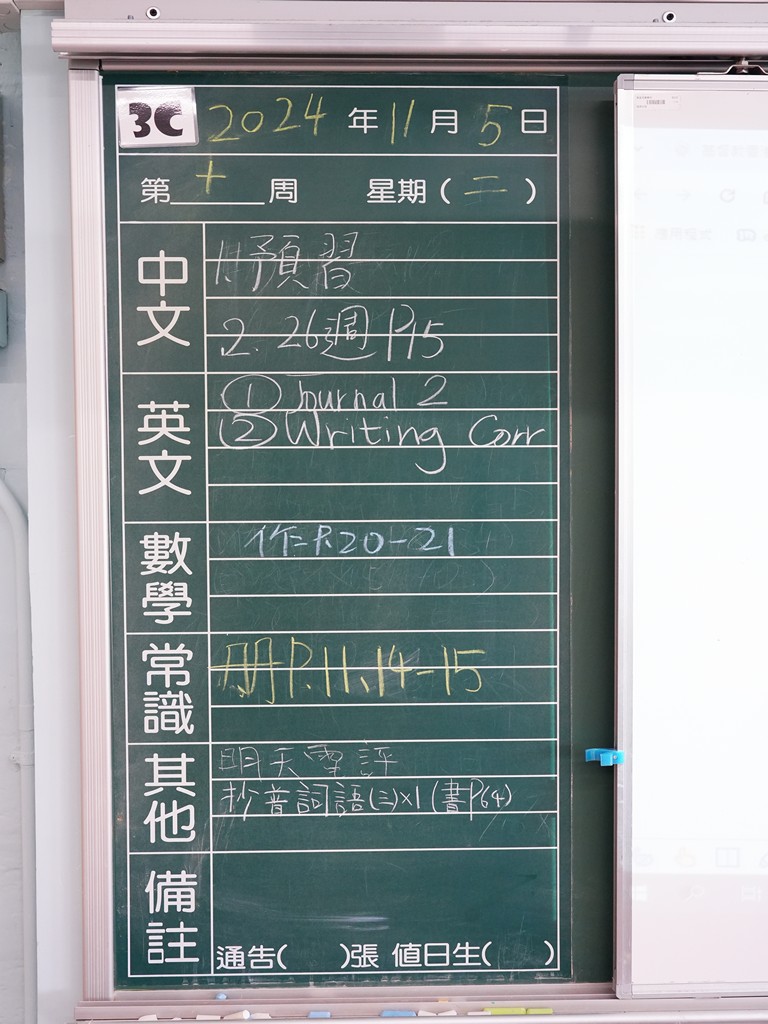 3C 2024年11月5日
第十周 星期(二)
中文
1.預習
2. 26週 P15
英文
① Journal 2
② Writing Corr
數學
作=P.20-21
常識
冊P.11、14-15
其他
明天 評
抄普詞語(三)×1 (書P64)
備註
通告( )張 值日生( )